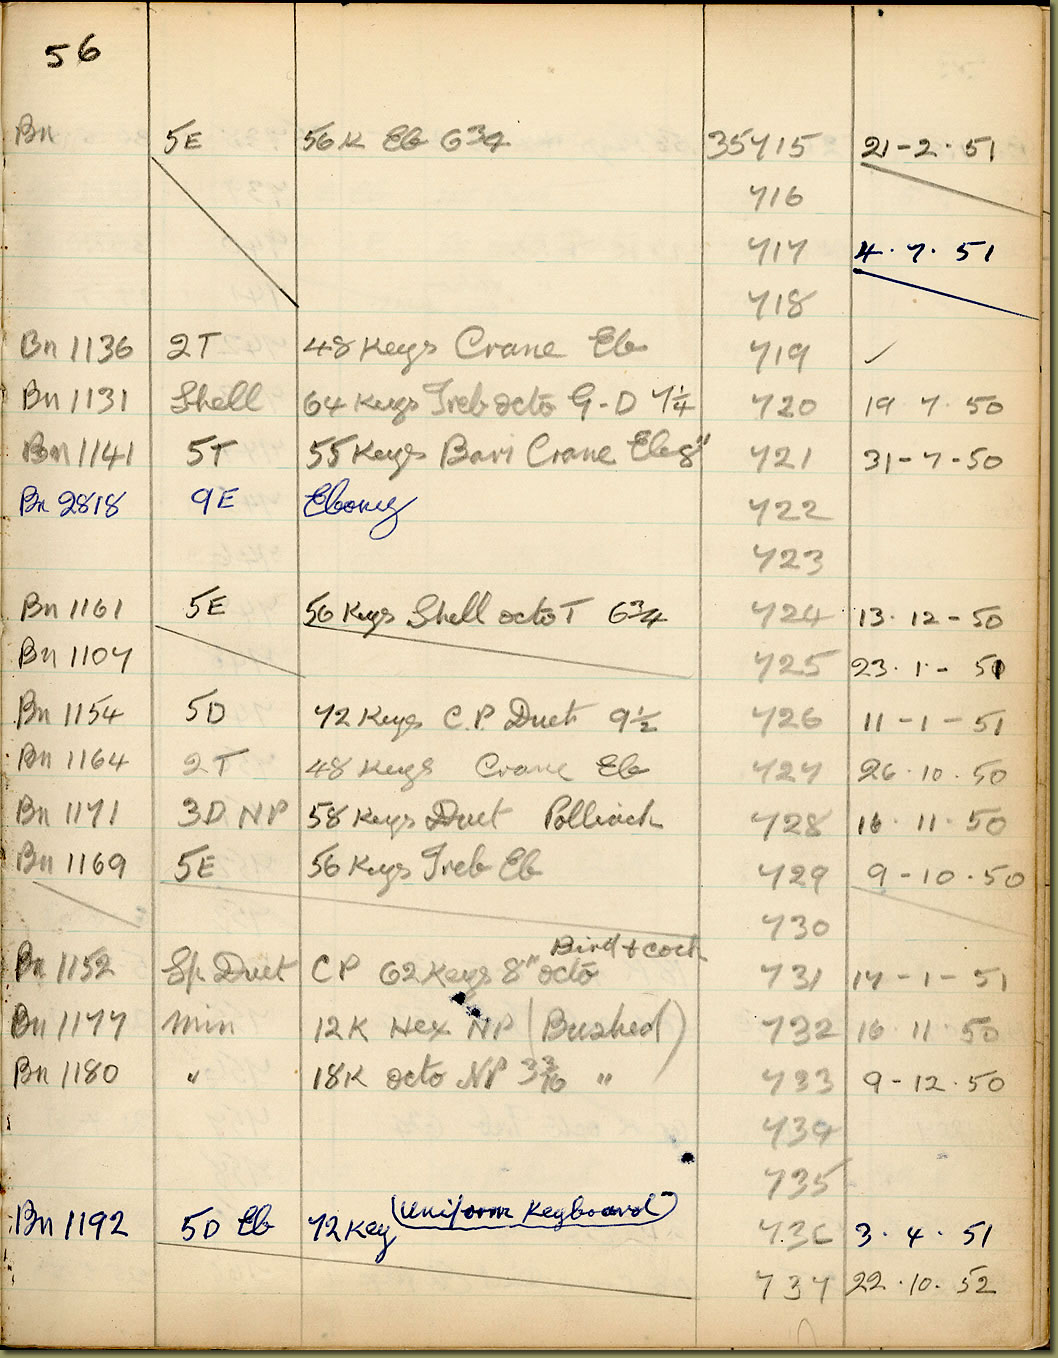 56
Bn 5E 56K Eb 6 3/4 35715 21-2-51
716
717 4.7.51
718
Bn 1136 2T 48 Keys Crane Eb 719 ✓
Bn 1131 Shell 64 Keys Treb octo G-D 7 1/4 720 19 7 50
Bn 1141 5T 55 Keys Bari Crane Eb 8" 721 31-7-50
Bn 2818 9E Ebony 722
723
Bn 1161 5E 56 Keys Shell octo T 6 3/4 724 13.12-50
Bn 1107 725 23.1-51
Bn 1154 5D 72 Keys C.P. Duet 9 1/2 726 11-1-51
Bn 1164 2T 48 Keys Crane Eb 727 26.10.50
Bn 1171 3D NP 58 Keys Duet 728 16.11.50
Bn 1169 5E 56 Keys Treb Eb 729 9-10.50
730
Bird + cock
Bn 1152 Sp. Duet CP 62 Keys 8" octo 731 17-1-51
Bn 1177 Min 12K Hex NP (Bushed) 732 16 11 50
Bn 1180 " 18K octo NP 3 3/16 " 733 9-12.50
734
735
(Uniform Keyboard)
Bn 1192 5D Eb 72 Key 736 3.4.51
737 22.10.52